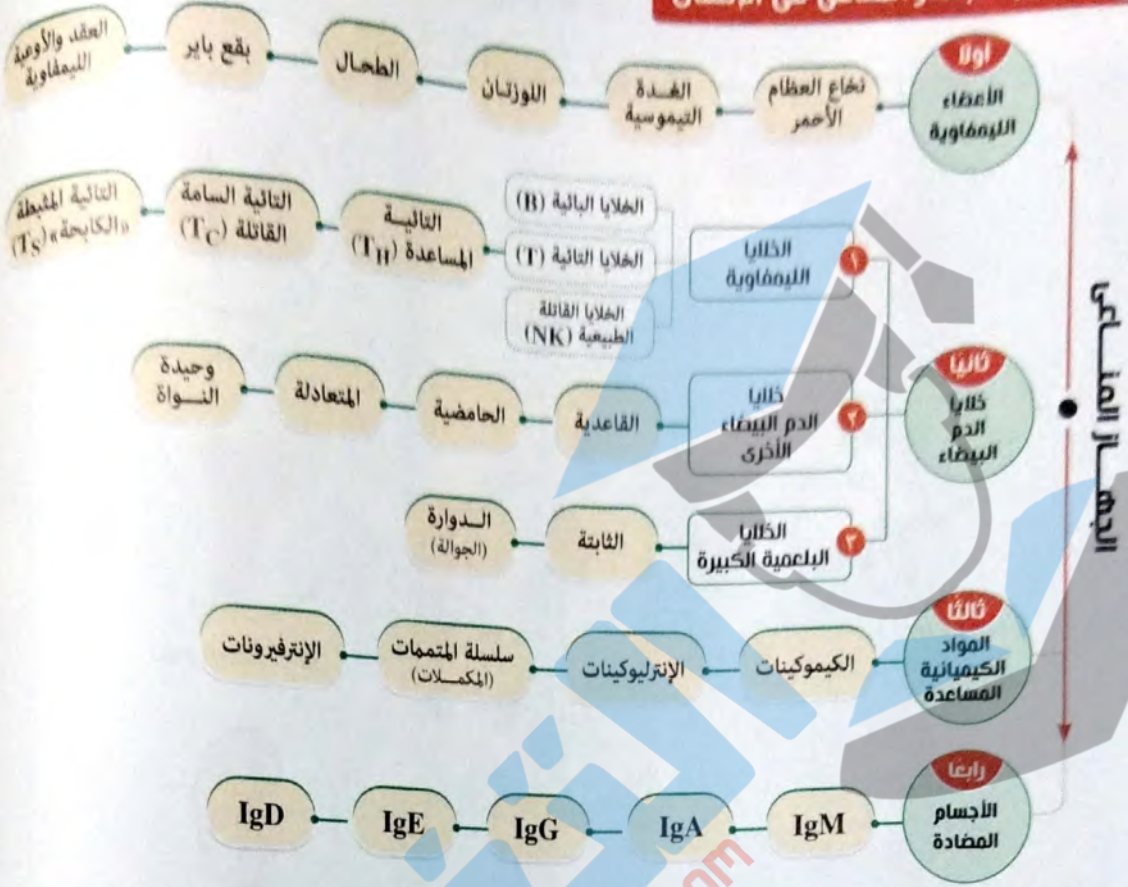 الجهـــاز المنـــاعى
أولًا
الأعضاء
الليمفاوية
نخاع العظام
الأحمر
الغــدة
التيموسية
اللوزتـان
الطحـال
بقع باير
العقد والأوعية
الليمفاوية
ثانيًا
خلايا
الدم
البيضاء
١
الخلايا
الليمفاوية
الخلايا البائية (B)
الخلايا التائية (T)
الخلايا القاتلة
الطبيعية (NK)
التائيــة
المساعدة (TH)
التائية السامة
القاتلة (TC)
التائية المثبطة
«الكابحة» (TS)
٢
خلايا
الدم البيضاء
الأخرى
القاعدية
الحامضية
المتعادلة
وحيدة
النــواة
٣
الخلايا
البلعمية الكبيرة
الثابتة
الــدوارة
(الجوالة)
ثالثًا
المواد
الكيميائية
المساعدة
الكيموكينات
الإنترليوكينات
سلسلة المتممات
(المكمــلات)
الإنترفيرونات
رابعًا
الأجسام
المضادة
IgM
IgA
IgG
IgE
IgD